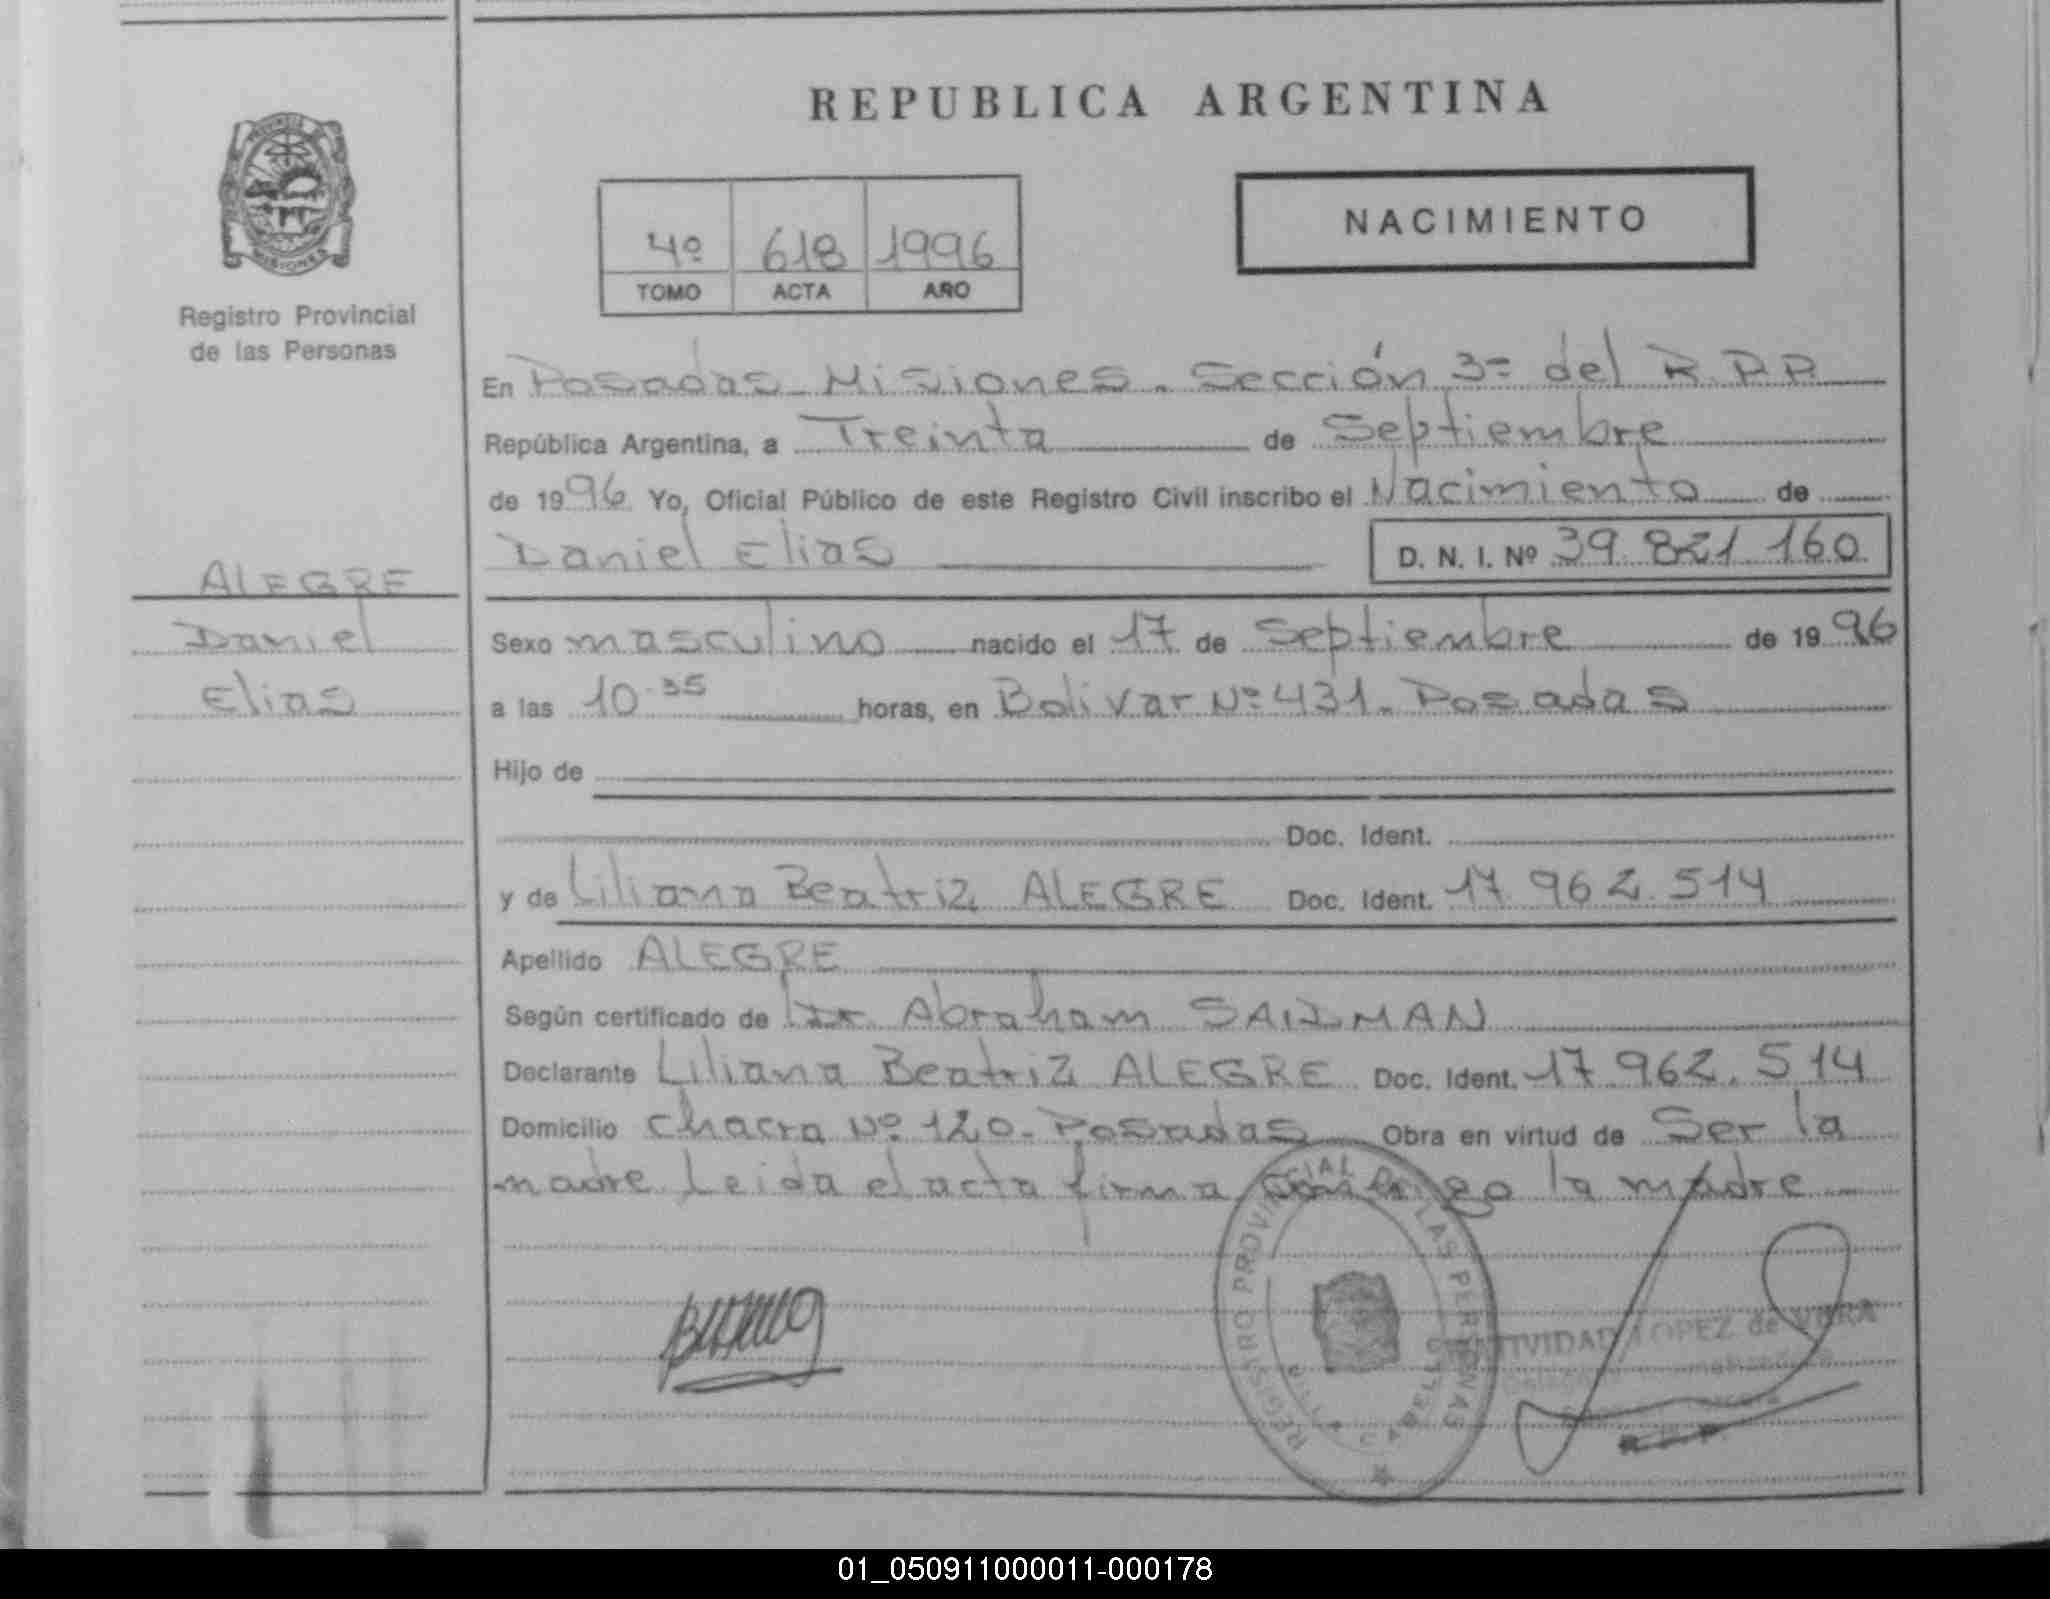 REPUBLICA ARGENTINA
PROVINCIA DE
MISIONES
Registro Provincial
de las Personas
4º 618 1996
TOMO ACTA AÑO
NACIMIENTO
En Posadas Misiones. Sección 3ª del R.P.P.
República Argentina, a Treinta de Septiembre
de 1996 Yo, Oficial Público de este Registro Civil inscribo el Nacimiento de
Daniel Elias D. N. I. Nº 39.821.160
ALEGRE
Daniel
Elias
Sexo masculino nacido el 17 de Septiembre de 1996
a las 10.35 horas, en Bolivar Nº 431. Posadas
Hijo de
Doc. Ident.
y de Liliana Beatriz ALEGRE Doc. Ident. 17.962.514
Apellido ALEGRE
Según certificado de Dr. Abraham SAIZMAN
Declarante Liliana Beatriz ALEGRE Doc. Ident. 17.962.514
Domicilio chacra Nº 120. Posadas Obra en virtud de Ser la
madre Leida el acta firma conmigo la madre
REGISTRO PROVINCIAL DE LAS PERSONAS
NATIVIDAD LOPEZ de VIERA
01_050911000011-000178